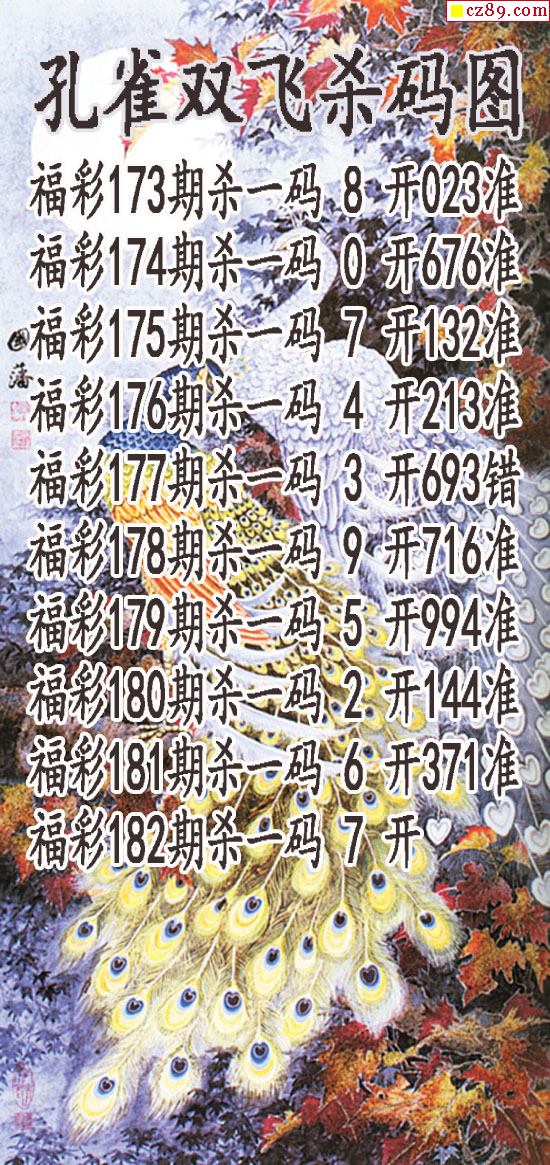 cz89.com
孔雀双飞杀码图
福彩173期杀一码 8 开023准
福彩174期杀一码 0 开676准
福彩175期杀一码 7 开132准
福彩176期杀一码 4 开213准
福彩177期杀一码 3 开693错
福彩178期杀一码 9 开716准
福彩179期杀一码 5 开994准
福彩180期杀一码 2 开144准
福彩181期杀一码 6 开371准
福彩182期杀一码 7 开
國藩